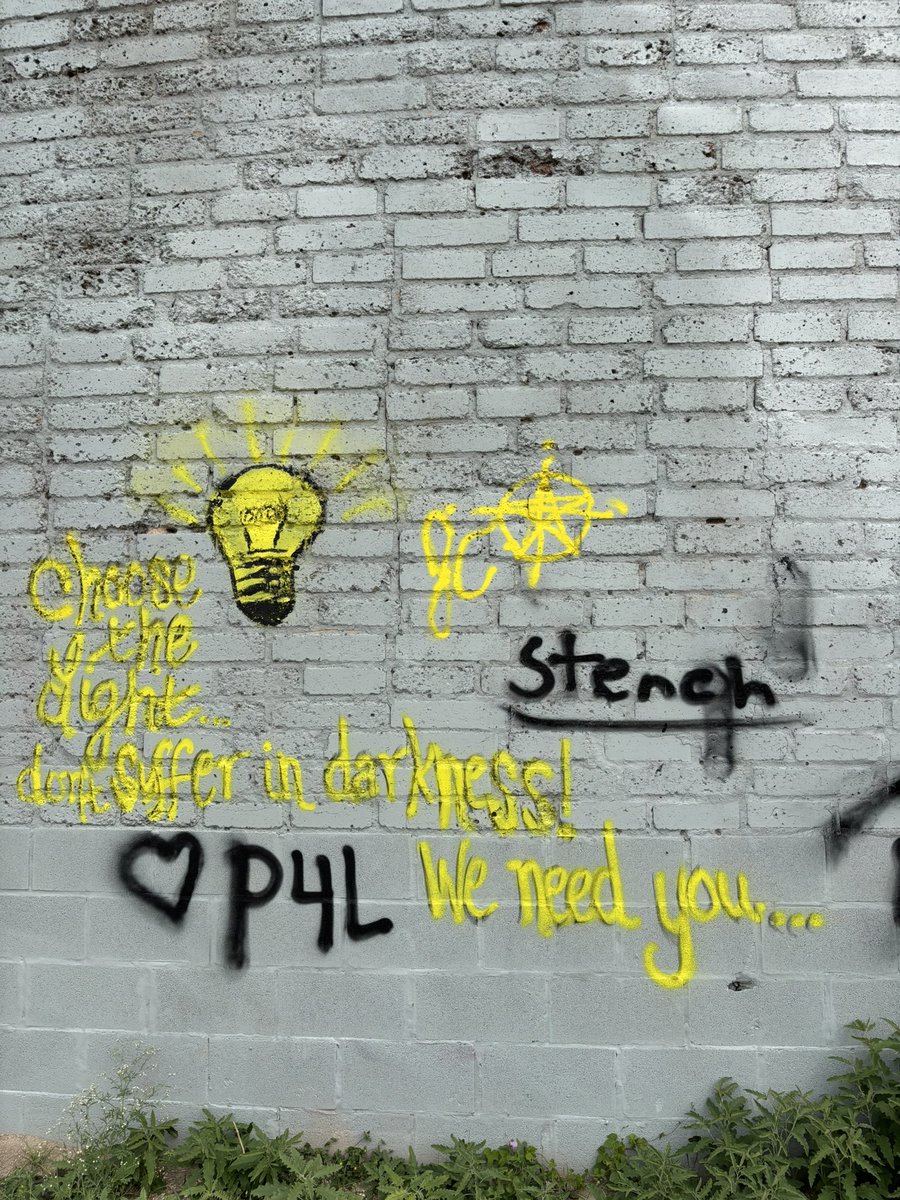 choose
the
light...
dont suffer in darkness!
gc
Stench
P4L
We need you....